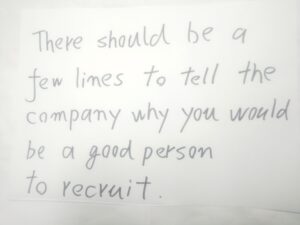 There should be a
few lines to tell the
company why you would
be a good person
to recruit.